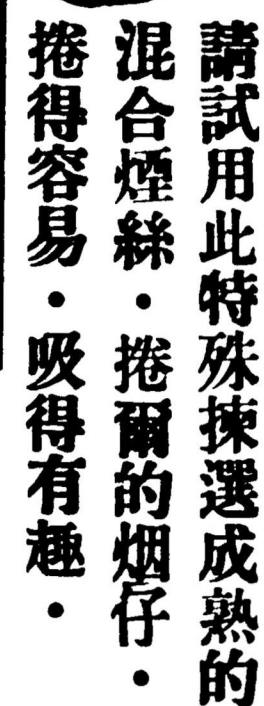 請試用此特殊揀選成熟的
混合煙絲·捲爾的烟仔·
捲得容易·吸得有趣·